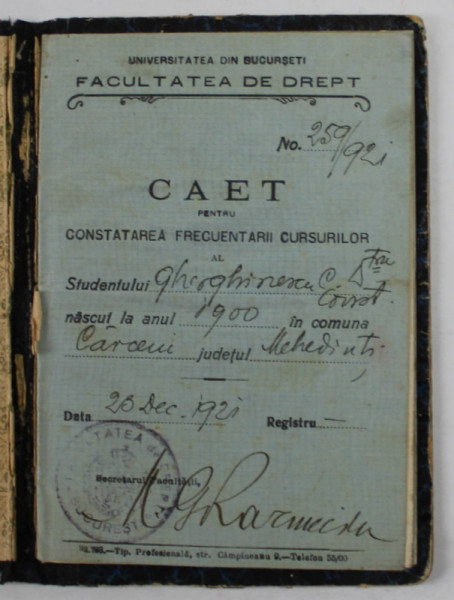 UNIVERSITATEA DIN BUCURȘETI
FACULTATEA DE DREPT
No. 259/921
CAET
PENTRU
CONSTATAREA FRECUENTARII CURSURILOR
AL
Studentului Gherghinescu C.
născut la anul 1900 în comuna
Cârceni județul Mehedinți
Data 23 Dec. 1921 Registru —
Secretarul Facultății,
—Tip. Profesională, str. Câmpineanu 9.—Telefon 55/60